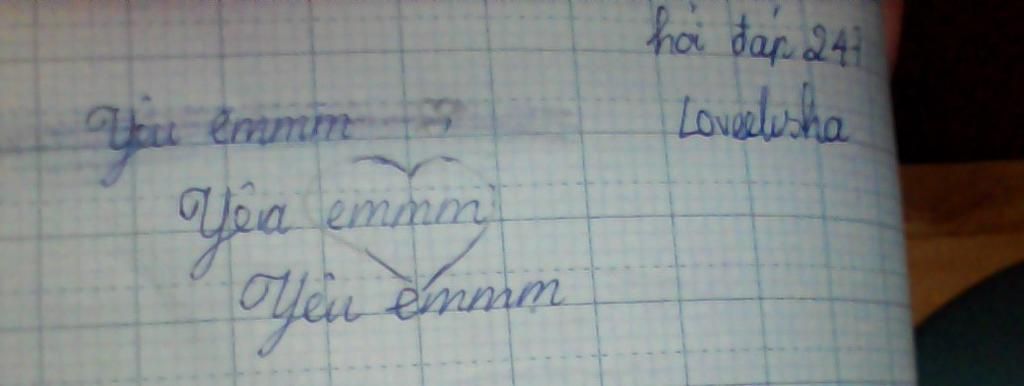 hỏi đáp 247
Yêu emmm
Yêu emmm
Yêu emmm